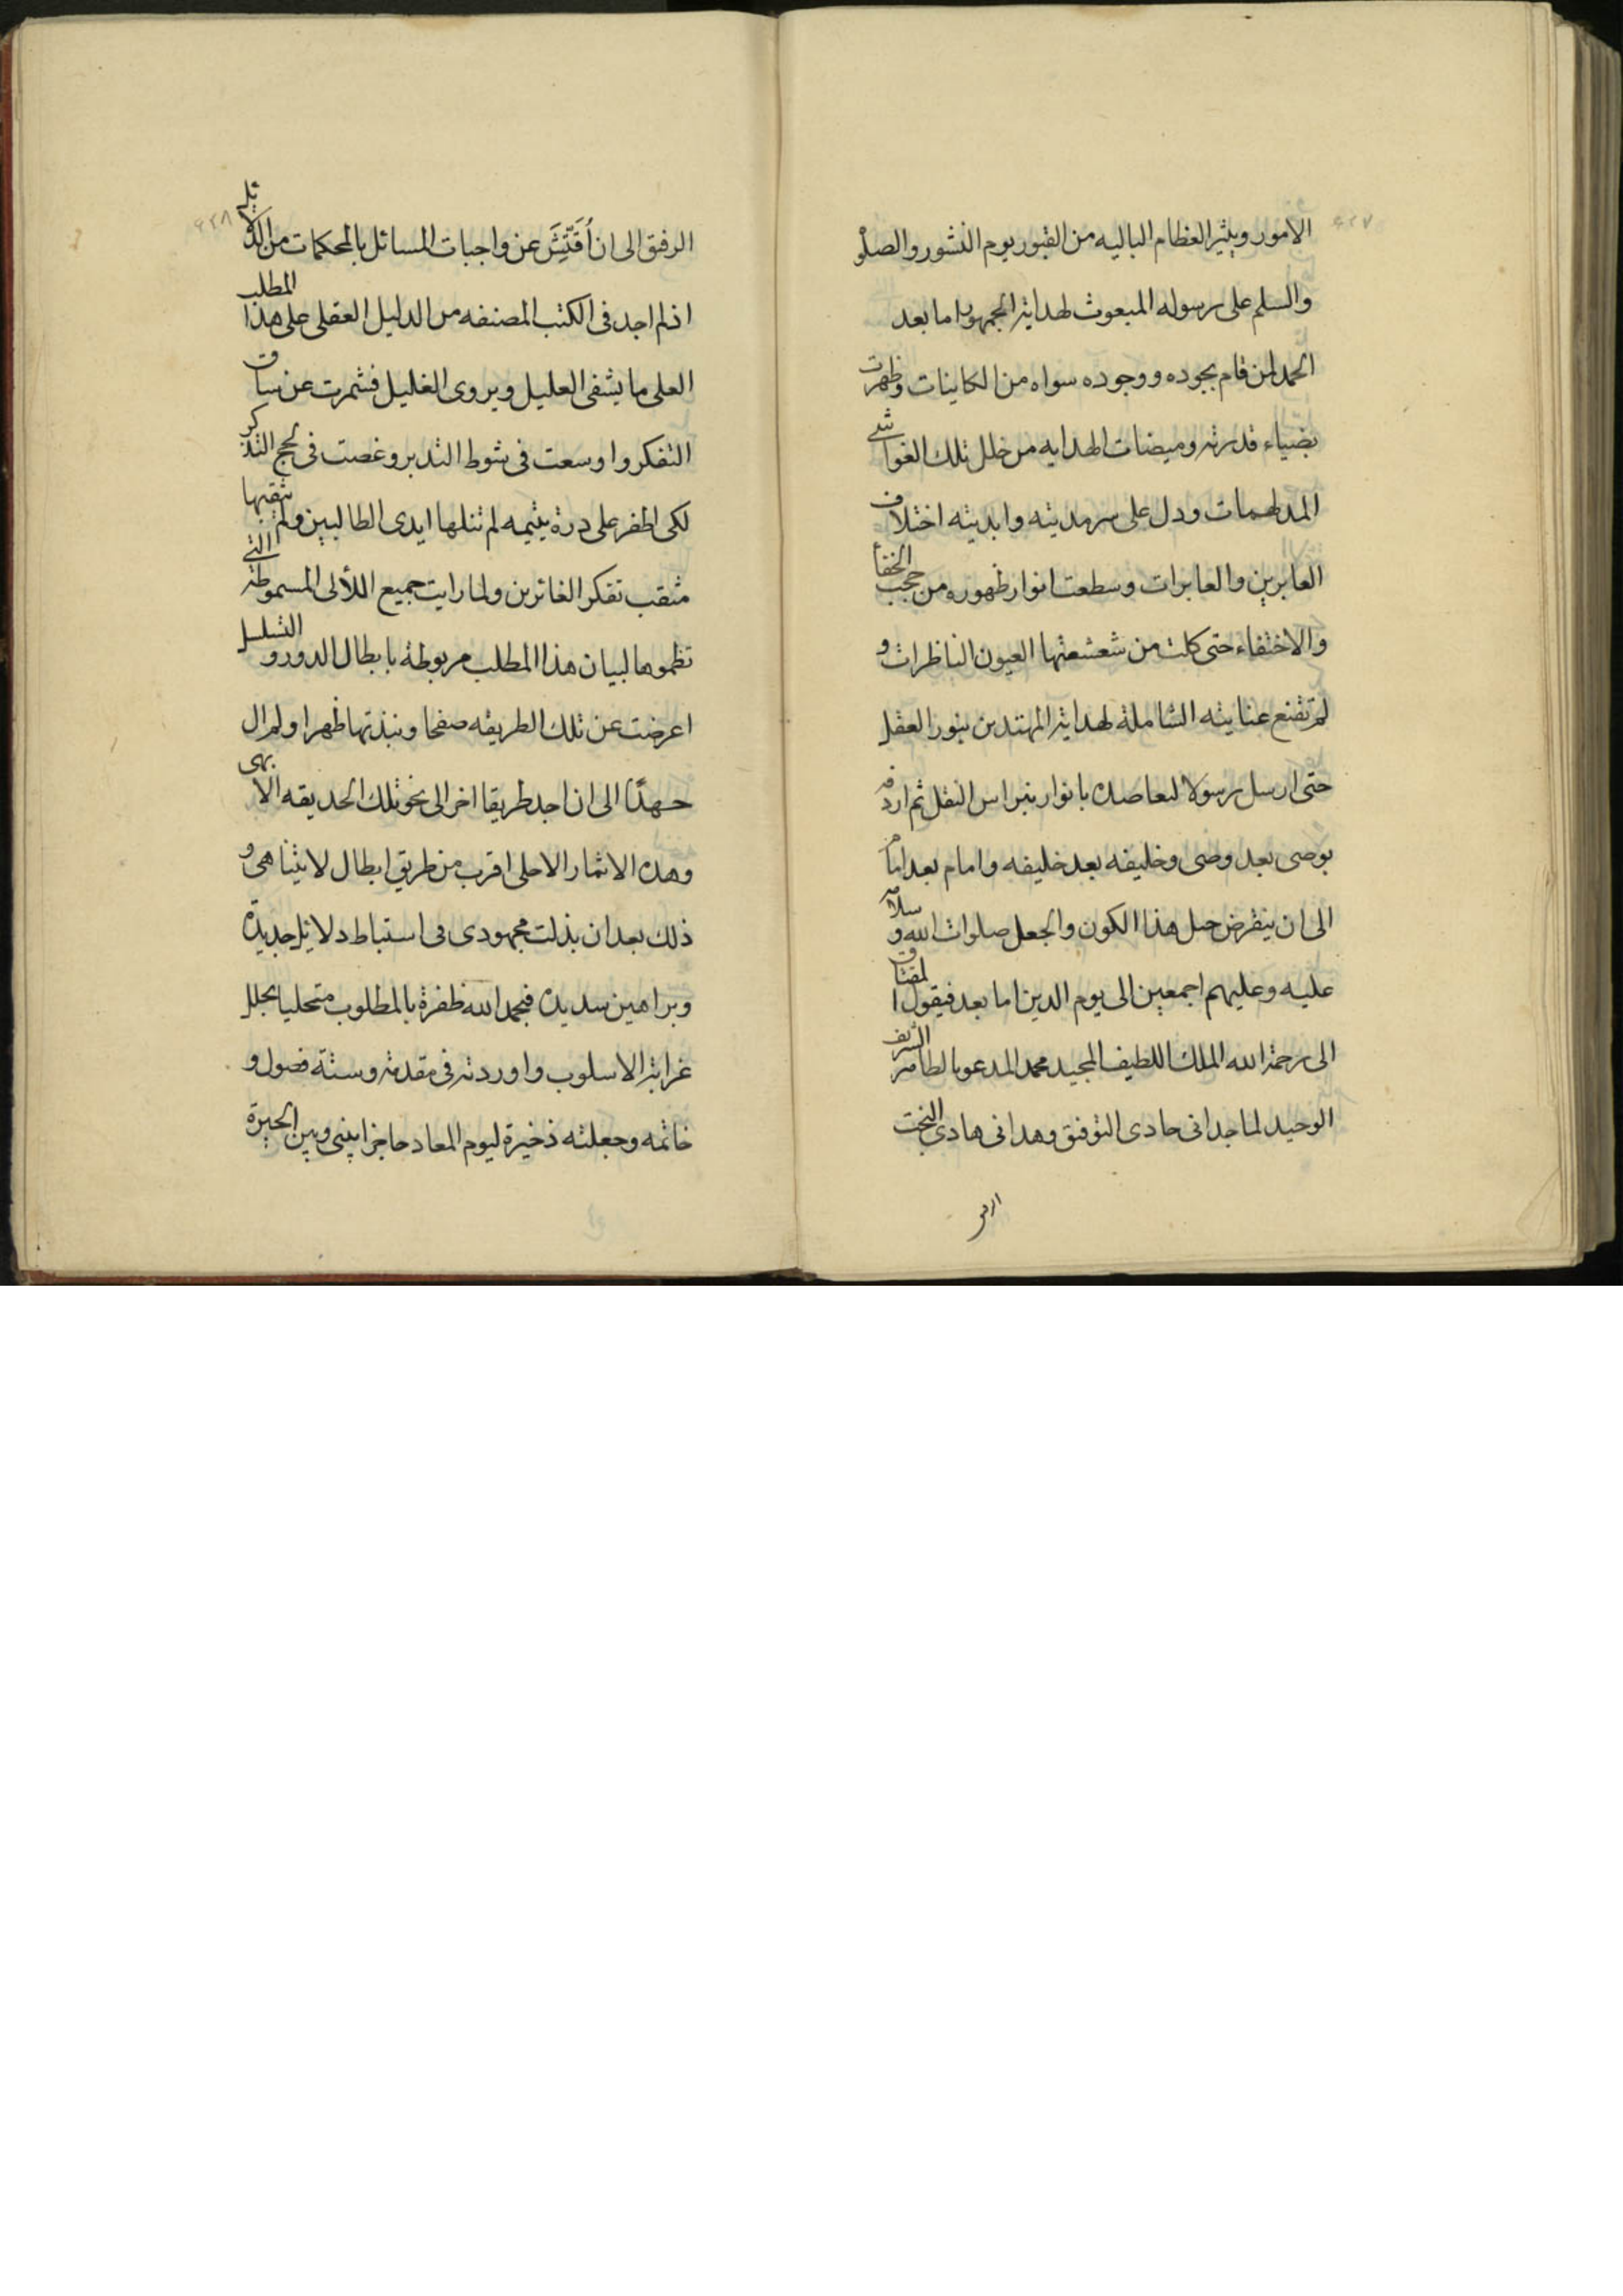 الامور ويثير العظام الباليه من القبور يوم النشور والصلوة
والسلم على رسوله المبعوث لهداية الجمهور اما بعد
الحمد لمن قام بجوده ووجوده سواه من الكاينات وظهرت
بضياء قدرته وميضات الهدايه من خلل تلك الغواشى
المدلهمات ودل على سرمديته وابديته اختلاف
العابرين والعابرات وسطعت انوار ظهوره من حجب الخفا
والاختفاء حتى كلت من شعشعتها العيون الناظرات و
لم تقنع عنايته الشاملة لهداية المهتدين بنور العقل
حتى ارسل رسولا لتعاضده بانوار نبراس النقل ثم اردفه
بوصى بعد وصى وخليفه بعد خليفه وامام بعد امام
الى ان ينقرض حبل هذا الكون والجعل صلوات الله و سلامه
عليه وعليهم اجمعين الى يوم الدين اما بعد فيقول المفتاق
الى رحمة الله الملك اللطيف المجيد محمد المدعو بالطاهر الشريف
الوحيد لما جدانى حادى التوفيق وهدانى هادى البخت
الرفيق
الرفيق الى ان اُفَتِّشَ عن واجبات المسائل بالمحكمات من الدلائل
اذ لم اجد فى الكتب المصنفه من الدليل العقلى على هذا المطلب
العلى ما يشفى العليل ويروى الغليل فشمرت عن ساق
التفكر واوسعت فى شوط التدبر وغصت فى لجج التذكر
لكى اظفر على درة يتيمه لم تنلها ايدى الطالبين ولم يثقبها
مثقب تفكر الغائرين ولما رايت جميع اللألى المسموطة التى
نظموها لبيان هذا المطلب مربوطة بابطال الدور و التسلسل
اعرضت عن تلك الطريقه صفحا ونبذتها ظهرا ولم ال
جهدًا الى ان اجد طريقا اخر الى نحو تلك الحديقه الابهى
وهذه الاثمار الاحلى اقرب من طريق ابطال لا يتناهى و
ذلك بعد ان بذلت مجهودى فى استنباط دلائل جديدة
وبراهين سديده فبحمد الله ظفرة بالمطلوب متحليا بحلل
غرابة الاسلوب واوردته فى مقدمة وستة فصول و
خاتمه وجعلته ذخيرة ليوم المعاد حاجزا بينى وبين الحيرة